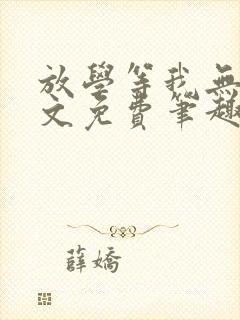 放學等我無
文免費筆趣
薛嬌